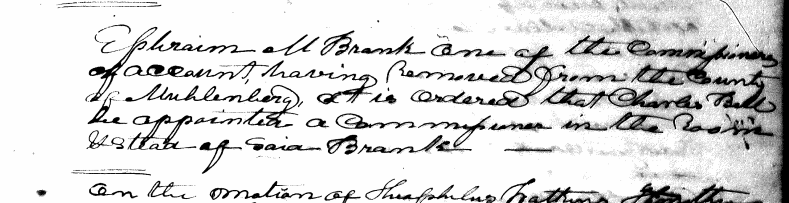 Ephraim M Brank one of the Commissioners
of account, having Removed from the County
of Muhlenberg, it is ordered that Charles Bell
be appointed a Commissioner in the Room
& Stead of Said Brank
On the motion of Theophilus